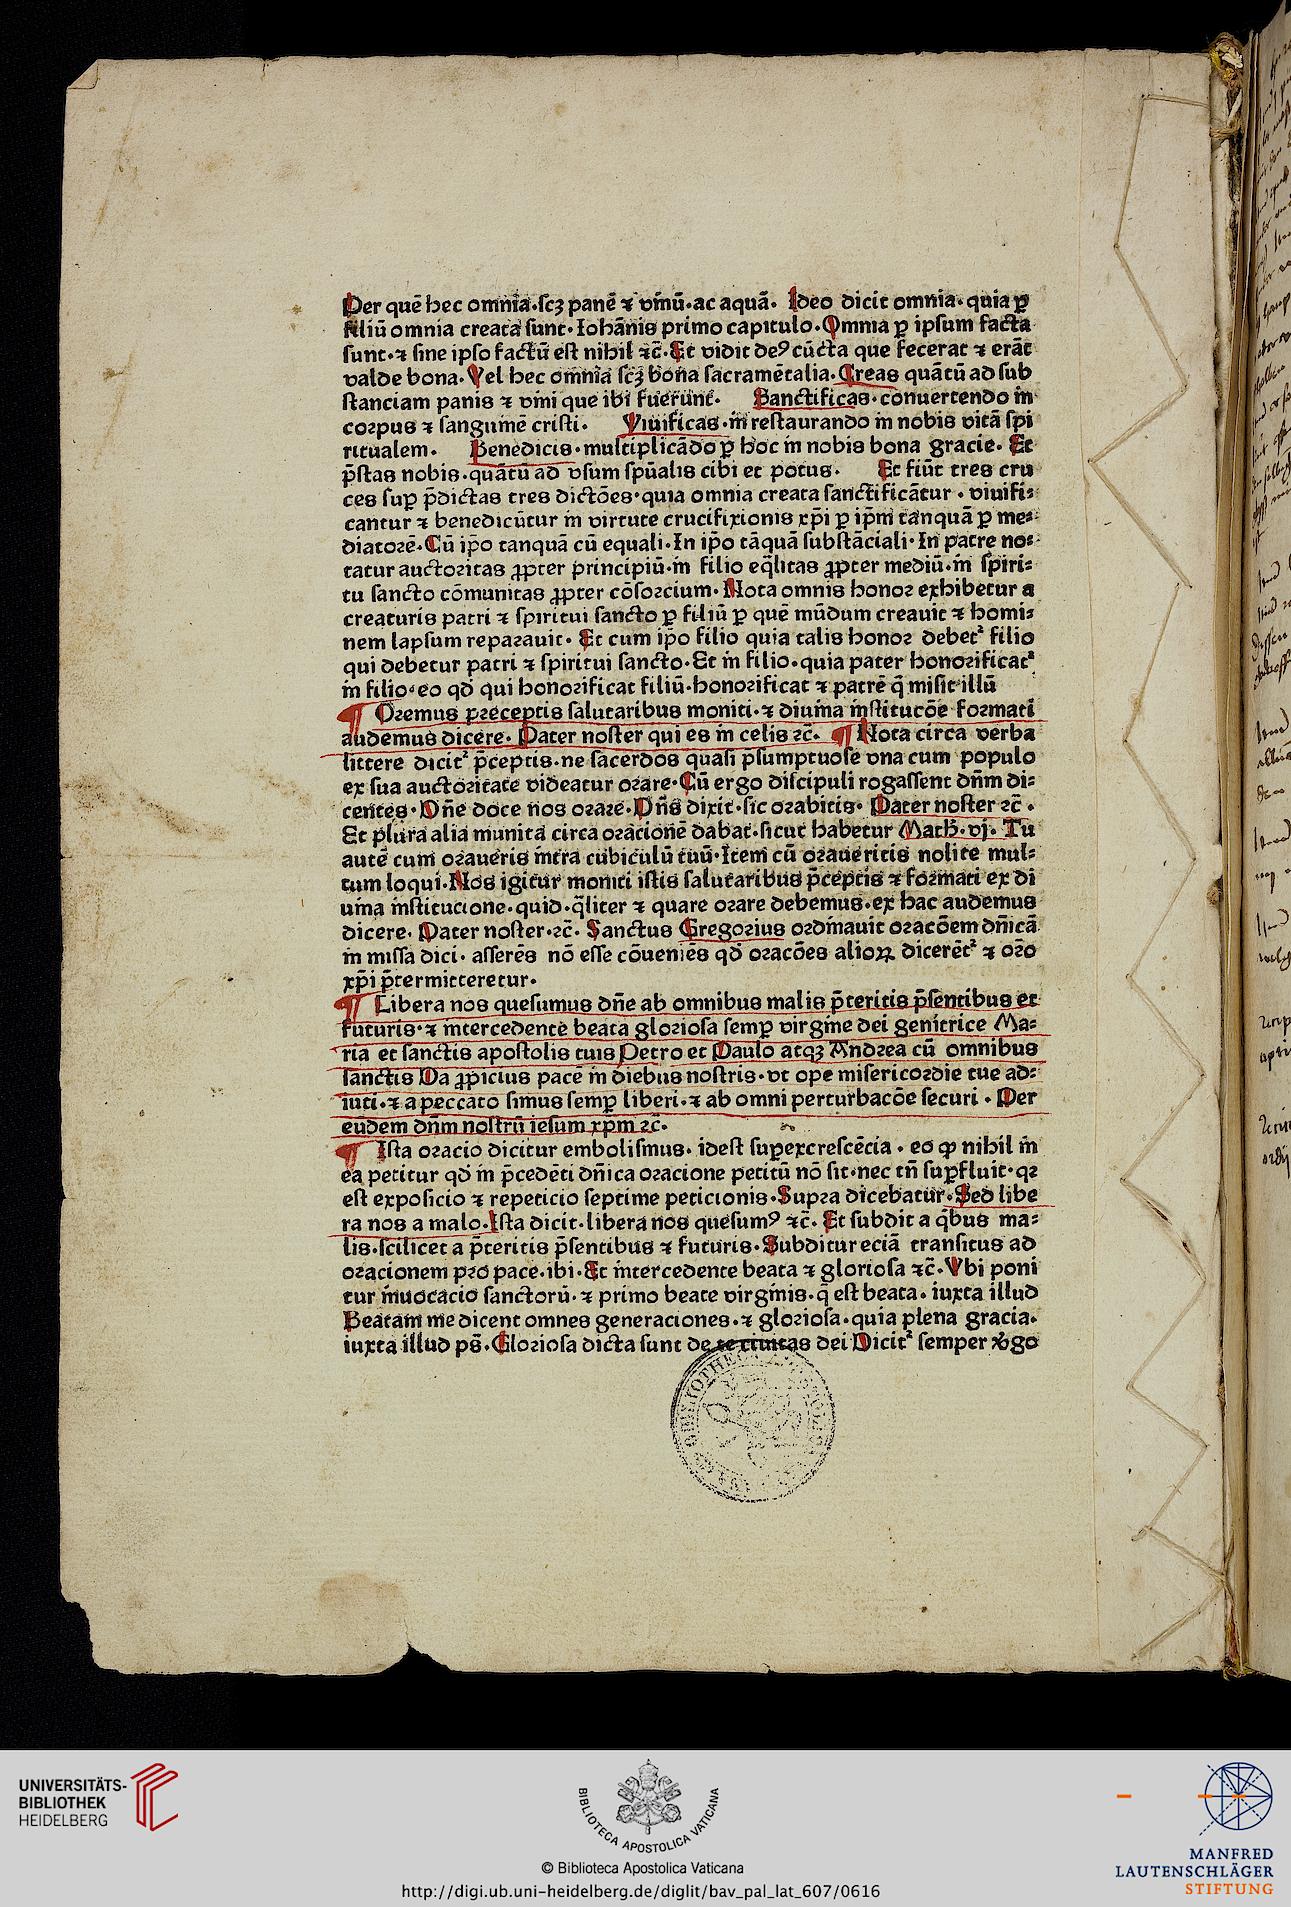 Per quē hec omnia·scꝫ panē ⁊ vinū·ac aquā· Ideo dicit omnia·quia ꝑ
filiū omnia creata sunt·Iohānis primo capitulo·Omnia ꝑ ipsum facta
sunt·⁊ sine ipso factū est nihil ⁊c̄·Et vidit deꝰ cūcta que fecerat ⁊ erāt
valde bona·Vel hec omnia scꝫ bona sacramētalia·Creas quātū ad sub
stanciam panis ⁊ vini que ibi fuerunt· Sanctificas·conuertendo in
corpus ⁊ sanguinē cristi· Viuificas·in restaurando in nobis vitā spi
ritualem· Benedicis·multiplicādo ꝑ hoc in nobis bona gracie· Et
p̄stas nobis·quātū ad vsum spūalis cibi et potus· Et fiūt tres cru
ces suꝑ p̄dictas tres dictōes·quia omnia creata sanctificātur·viuifi⸗
cantur ⁊ benedicūtur in virtute crucifixionis xp̄i ꝑ ip̄m tanquā ꝑ me⸗
diatorē·Cū ip̄o tanquā cū equali·In ip̄o tāquā substāciali·In patre no⸗
tatur auctoritas ꝓpter principiū·in filio eq̄litas ꝓpter mediū·in spiri⸗
tu sancto cōmunitas ꝓpter cōsorcium·Nota omnis honor exhibetur a
creaturis patri ⁊ spiritui sancto ꝑ filiū ꝑ quē mūdum creauit ⁊ homi⸗
nem lapsum reparauit· Et cum ip̄o filio quia talis honor debet᷑ filio
qui debetur patri ⁊ spiritui sancto·Et in filio·quia pater honorificat᷑
in filio·eo qd̄ qui honorificat filiū·honorificat ⁊ patrē q̄ misit illū
¶ Oremus preceptis salutaribus moniti·⁊ diuina institucōe formati
audemus dicere·Pater noster qui es in celis ⁊c̄· ¶ Nota circa verba
littere dicit᷑ p̄ceptis·ne sacerdos quasi p̄sumptuose vna cum populo
ex sua auctoritate videatur orare·Cū ergo discipuli rogassent dn̄m di⸗
centes·Dn̄e doce nos orare·Dn̄s dixit·sic orabitis·Pater noster ⁊c̄·
Et plura alia munita circa oracionē dabat·sicut habetur Math̄·vj·Tu
autē cum oraueris intra cubiculū tuū·Item cū oraueritis nolite mul⸗
tum loqui·Nos igitur moniti istis salutaribus p̄ceptis ⁊ formati ex di
uina institucione·quid·q̄liter ⁊ quare orare debemus·ex hac audemus
dicere·Pater noster·⁊c̄·Sanctus Gregorius ordinauit oracōem dn̄icā
in missa dici·asserēs nō esse cōueniēs qd̄ oracōes alioꝝ dicerēt᷑ ⁊ or̄o
xp̄i p̄termitteretur·
¶ Libera nos quesumus dn̄e ab omnibus malis p̄teritis p̄sentibus et
futuris·⁊ intercedente beata gloriosa semꝑ virgine dei genitrice Ma⸗
ria et sanctis apostolis tuis Petro et Paulo atqꝫ Andrea cū omnibus
sanctis Da ꝓpicius pacē in diebus nostris·vt ope misericordie tue ad⸗
iuti·⁊ a peccato simus semꝑ liberi·⁊ ab omni perturbacōe securi·Per
eundem dn̄m nostrū iesum xp̄m ⁊c̄·
¶ Ista oracio dicitur embolismus·idest suꝑexcrescēcia·eo ꝙ nihil in
ea petitur qd̄ in p̄cedēti dn̄ica oracione petitū nō sit·nec tn̄ suꝑfluit·qꝛ
est exposicio ⁊ repeticio septime peticionis·Supra dicebatur·Sed libe
ra nos a malo·Ista dicit·libera nos quesumꝰ ⁊c̄·Et subdit a q̄bus ma⸗
lis·scilicet a p̄teritis p̄sentibus ⁊ futuris·Subditur eciā transitus ad
oracionem pro pace·ibi·Et intercedente beata ⁊ gloriosa ⁊c̄·Vbi poni
tur inuocacio sanctorū·⁊ primo beate virginis·q̄ est beata·iuxta illud
Beatam me dicent omnes generaciones·⁊ gloriosa·quia plena gracia·
iuxta illud ps̄·Gloriosa dicta sunt de te ciuitas dei Dicit᷑ semper v̾go
UNIVERSITÄTS-
BIBLIOTHEK
HEIDELBERG
BIBLIOTECA APOSTOLICA VATICANA
© Biblioteca Apostolica Vaticana
http://digi.ub.uni-heidelberg.de/diglit/bav_pal_lat_607/0616
MANFRED
LAUTENSCHLÄGER
STIFTUNG